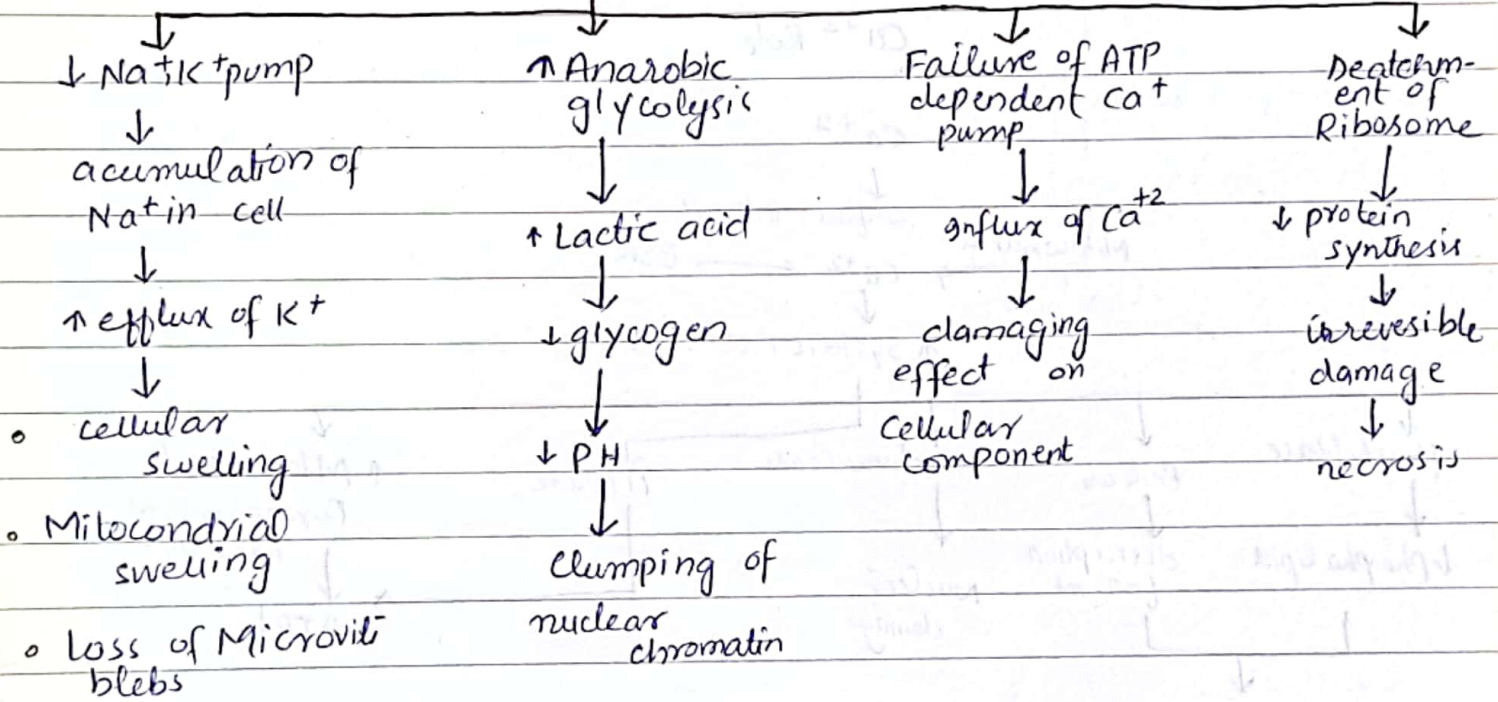 ↓ Na+K+pump
↓
acumulation of
Na+ in cell
↓
↑ efflux of K+
↓
• cellular
swelling
• Mitocondrial
swelling
• Loss of Microvili
blebs
↑ Anarobic
glycolysis
↓
↑ Lactic acid
↓
↓ glycogen
↓
↓ PH
↓
Clumping of
nuclear
chromatin
Failure of ATP
dependent Ca+
pump
↓
Influx of Ca+2
↓
damaging
effect on
Cellular
component
Deatchm-
ent of
Ribosome
↓
↓ protein
synthesis
↓
irrevesible
damage
↓
necrosis